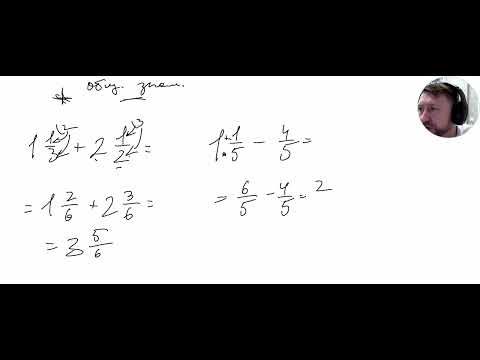 * общ. знам.
1 1/3 + 2 1/2 =
= 1 2/6 + 2 3/6 =
= 3 5/6
1 1/5 − 4/5 =
= 6/5 − 4/5 = 2